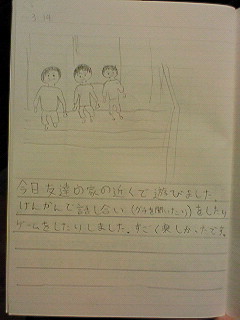 今日友達の家の近くで遊びました。
げんかんで話し合い(グチを聞いたり)をしたり
ゲームをしたりしました。すごく楽しかったです。